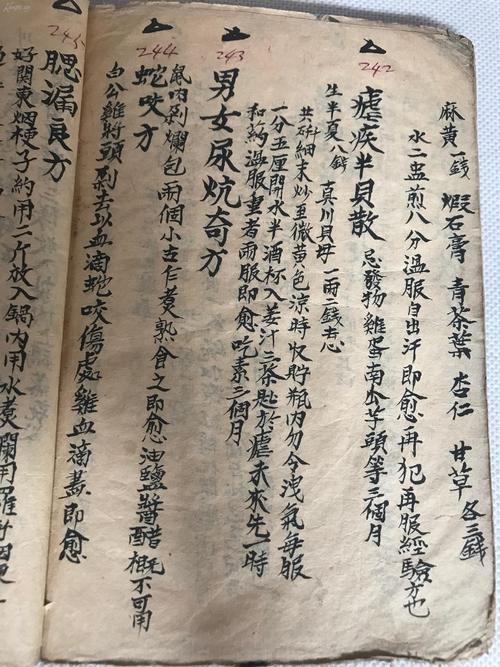 麻黄一錢 煆石膏 青茶葉 杏仁 甘草 各三錢
水二盅煎八分溫服自出汗即愈再犯再服經驗方也
242
瘧疾半貝散 忌發物雞蛋南瓜芋頭等三個月
生半夏八錢 真川貝母一兩二錢去心
共研細末炒至微黄色涼時收貯瓶內勿令洩氣每服
一分五厘開水半酒杯入姜汁三茶匙於瘧未來先一時
和药溫服重者兩服即愈吃素三個月
243
男女尿炕奇方
鼠肉剁爛包兩個小古乍煮熟食之即愈油鹽醬醋概不可用
244
蛇咬方
白公雞將頭剁去以血滴蛇咬傷處雞血滴盡即愈
245
腮漏良方
好関東烟梗子約用二斤放入鍋內用水煮爛用羅